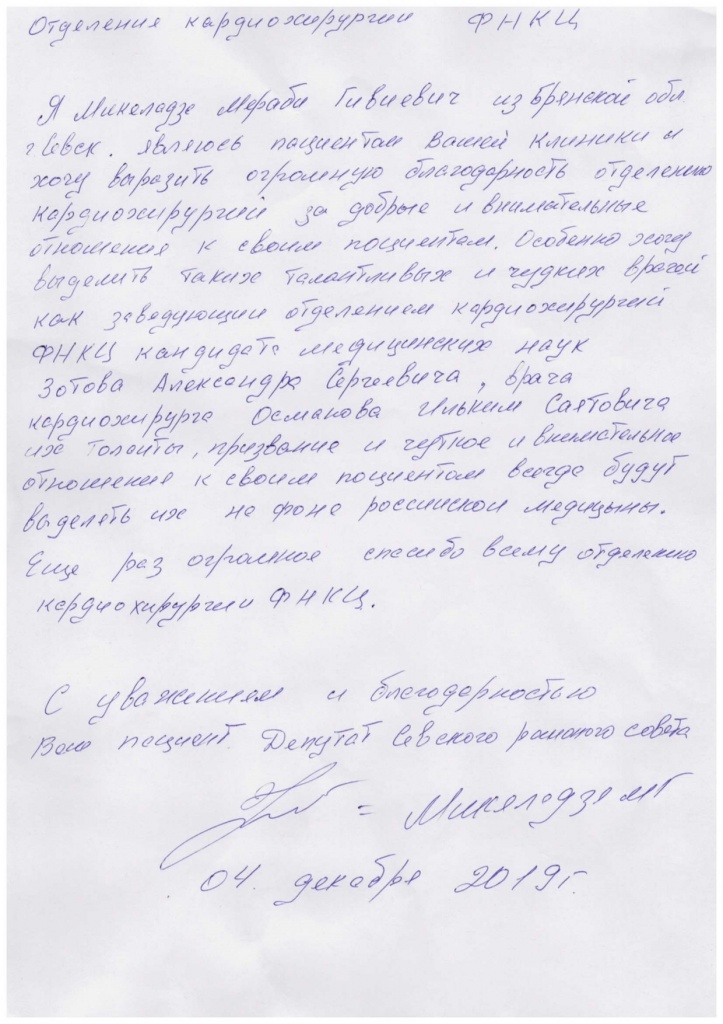 Отделения кардиохирургии ФНКЦ
Я Микеладзе Мераби Гивиевич из Брянской обл.
г. Севск. являюсь пациентом Вашей Клиники и
хочу выразить огромную благодарность отделению
кардиохирургий за добрые и внимательные
отношения к своим поциентам. Особенно хочу
выделить таких талантливых и чудких врачей
как заведующии отделением кардиохирургией
ФНКЦ кандидата медицинских наук
Зотова Александра Сергеевича, врача
кардиохирурга Османова Ильким Саятовича
их таланты, призвание и чуткое и внимательное
отношение к своим поциентам всегда будут
выделять их на фоне россиискои медицыны.
Еще раз огромное спасибо всему отделению
кардиохирургии ФНКЦ.
С уважением и благодарностью
Ваш пациент Депутат Севского районого совета
= Микеладзе МГ
04. декабря 2019г.